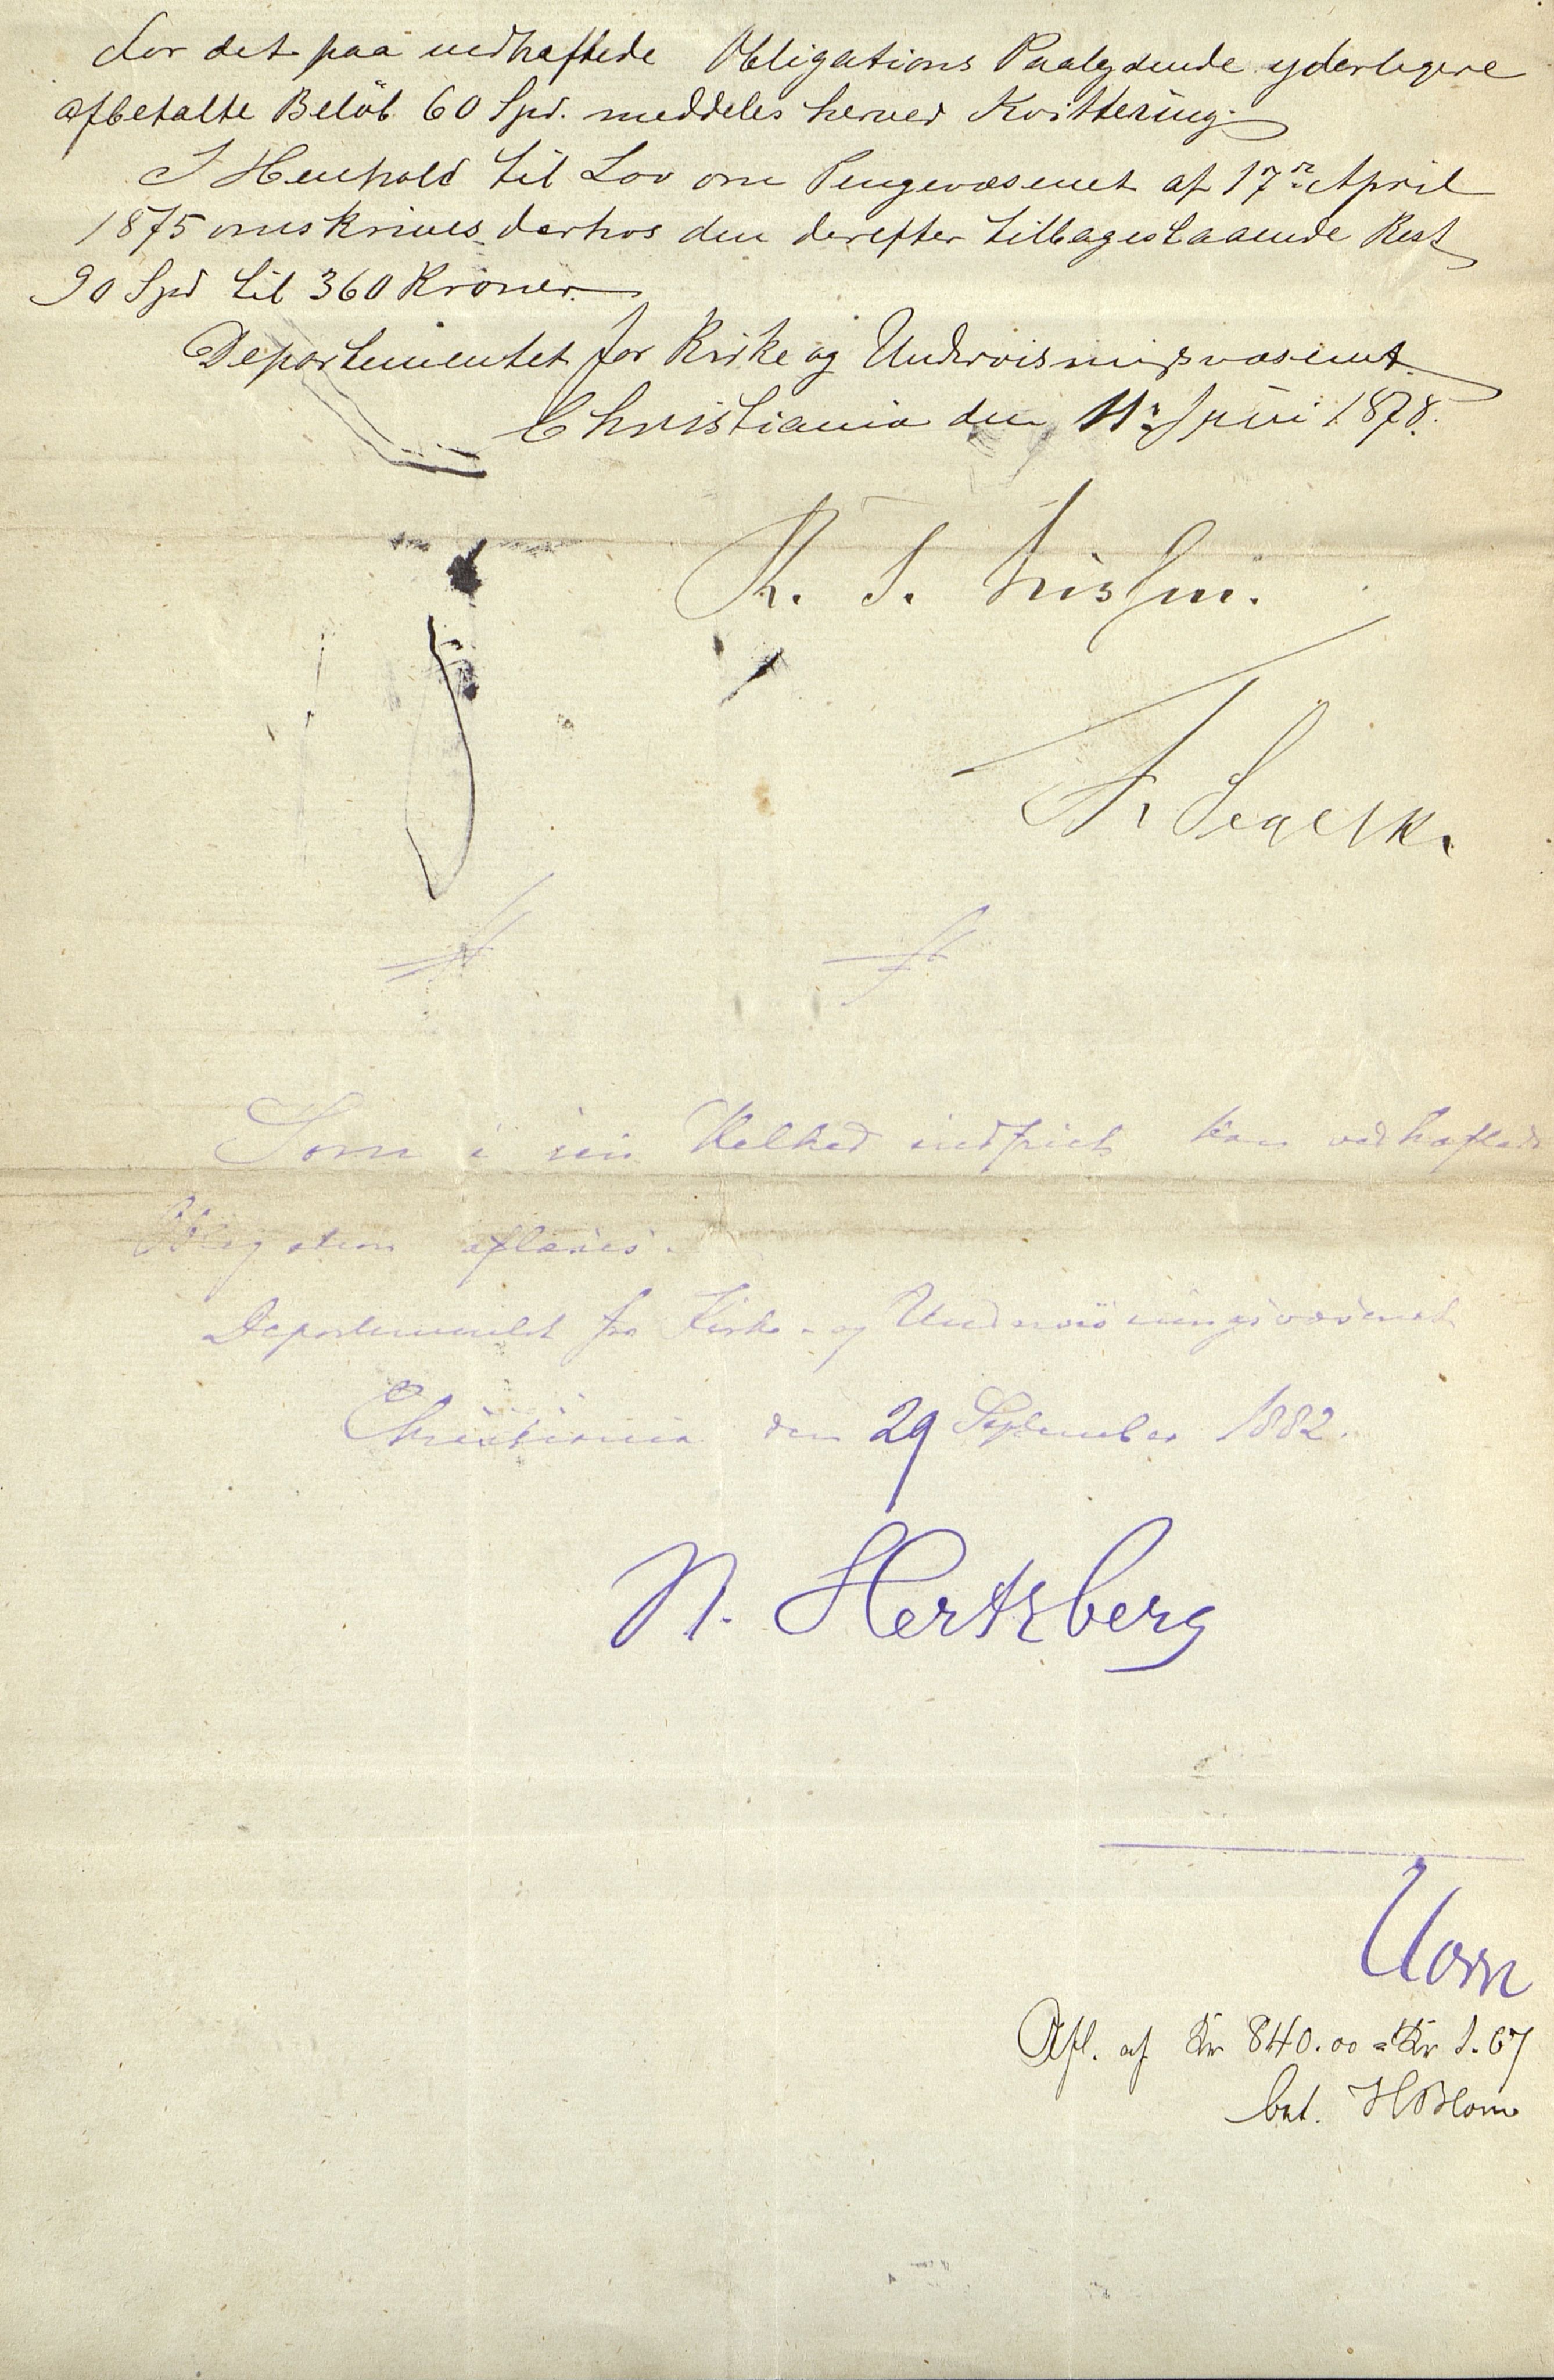 For det paa vedhæftede Obligations Paalydende yderligere
afbetalte Beløb 60 Spd. meddeles herved Kvittering.
I Henhold til Lov om Pengevæsenet af 17de April
1875 omskrives derhos den derefter tilbagestaaende Rest
90 Spd til 360 Kroner.
Departementet for Kirke og Undervisningsvæsenet.
Christiania den 11te Juni 1878.
Som i sin Helhed indfriet kan vedhæftede
Obligation aflæses.
Departementet for Kirke- og Undervisningsvæsenet
Christiania den 29 September 1882.
N. Hertzberg
Afl. af Kr 840.00 = Kr 1.67
bet. HBlom